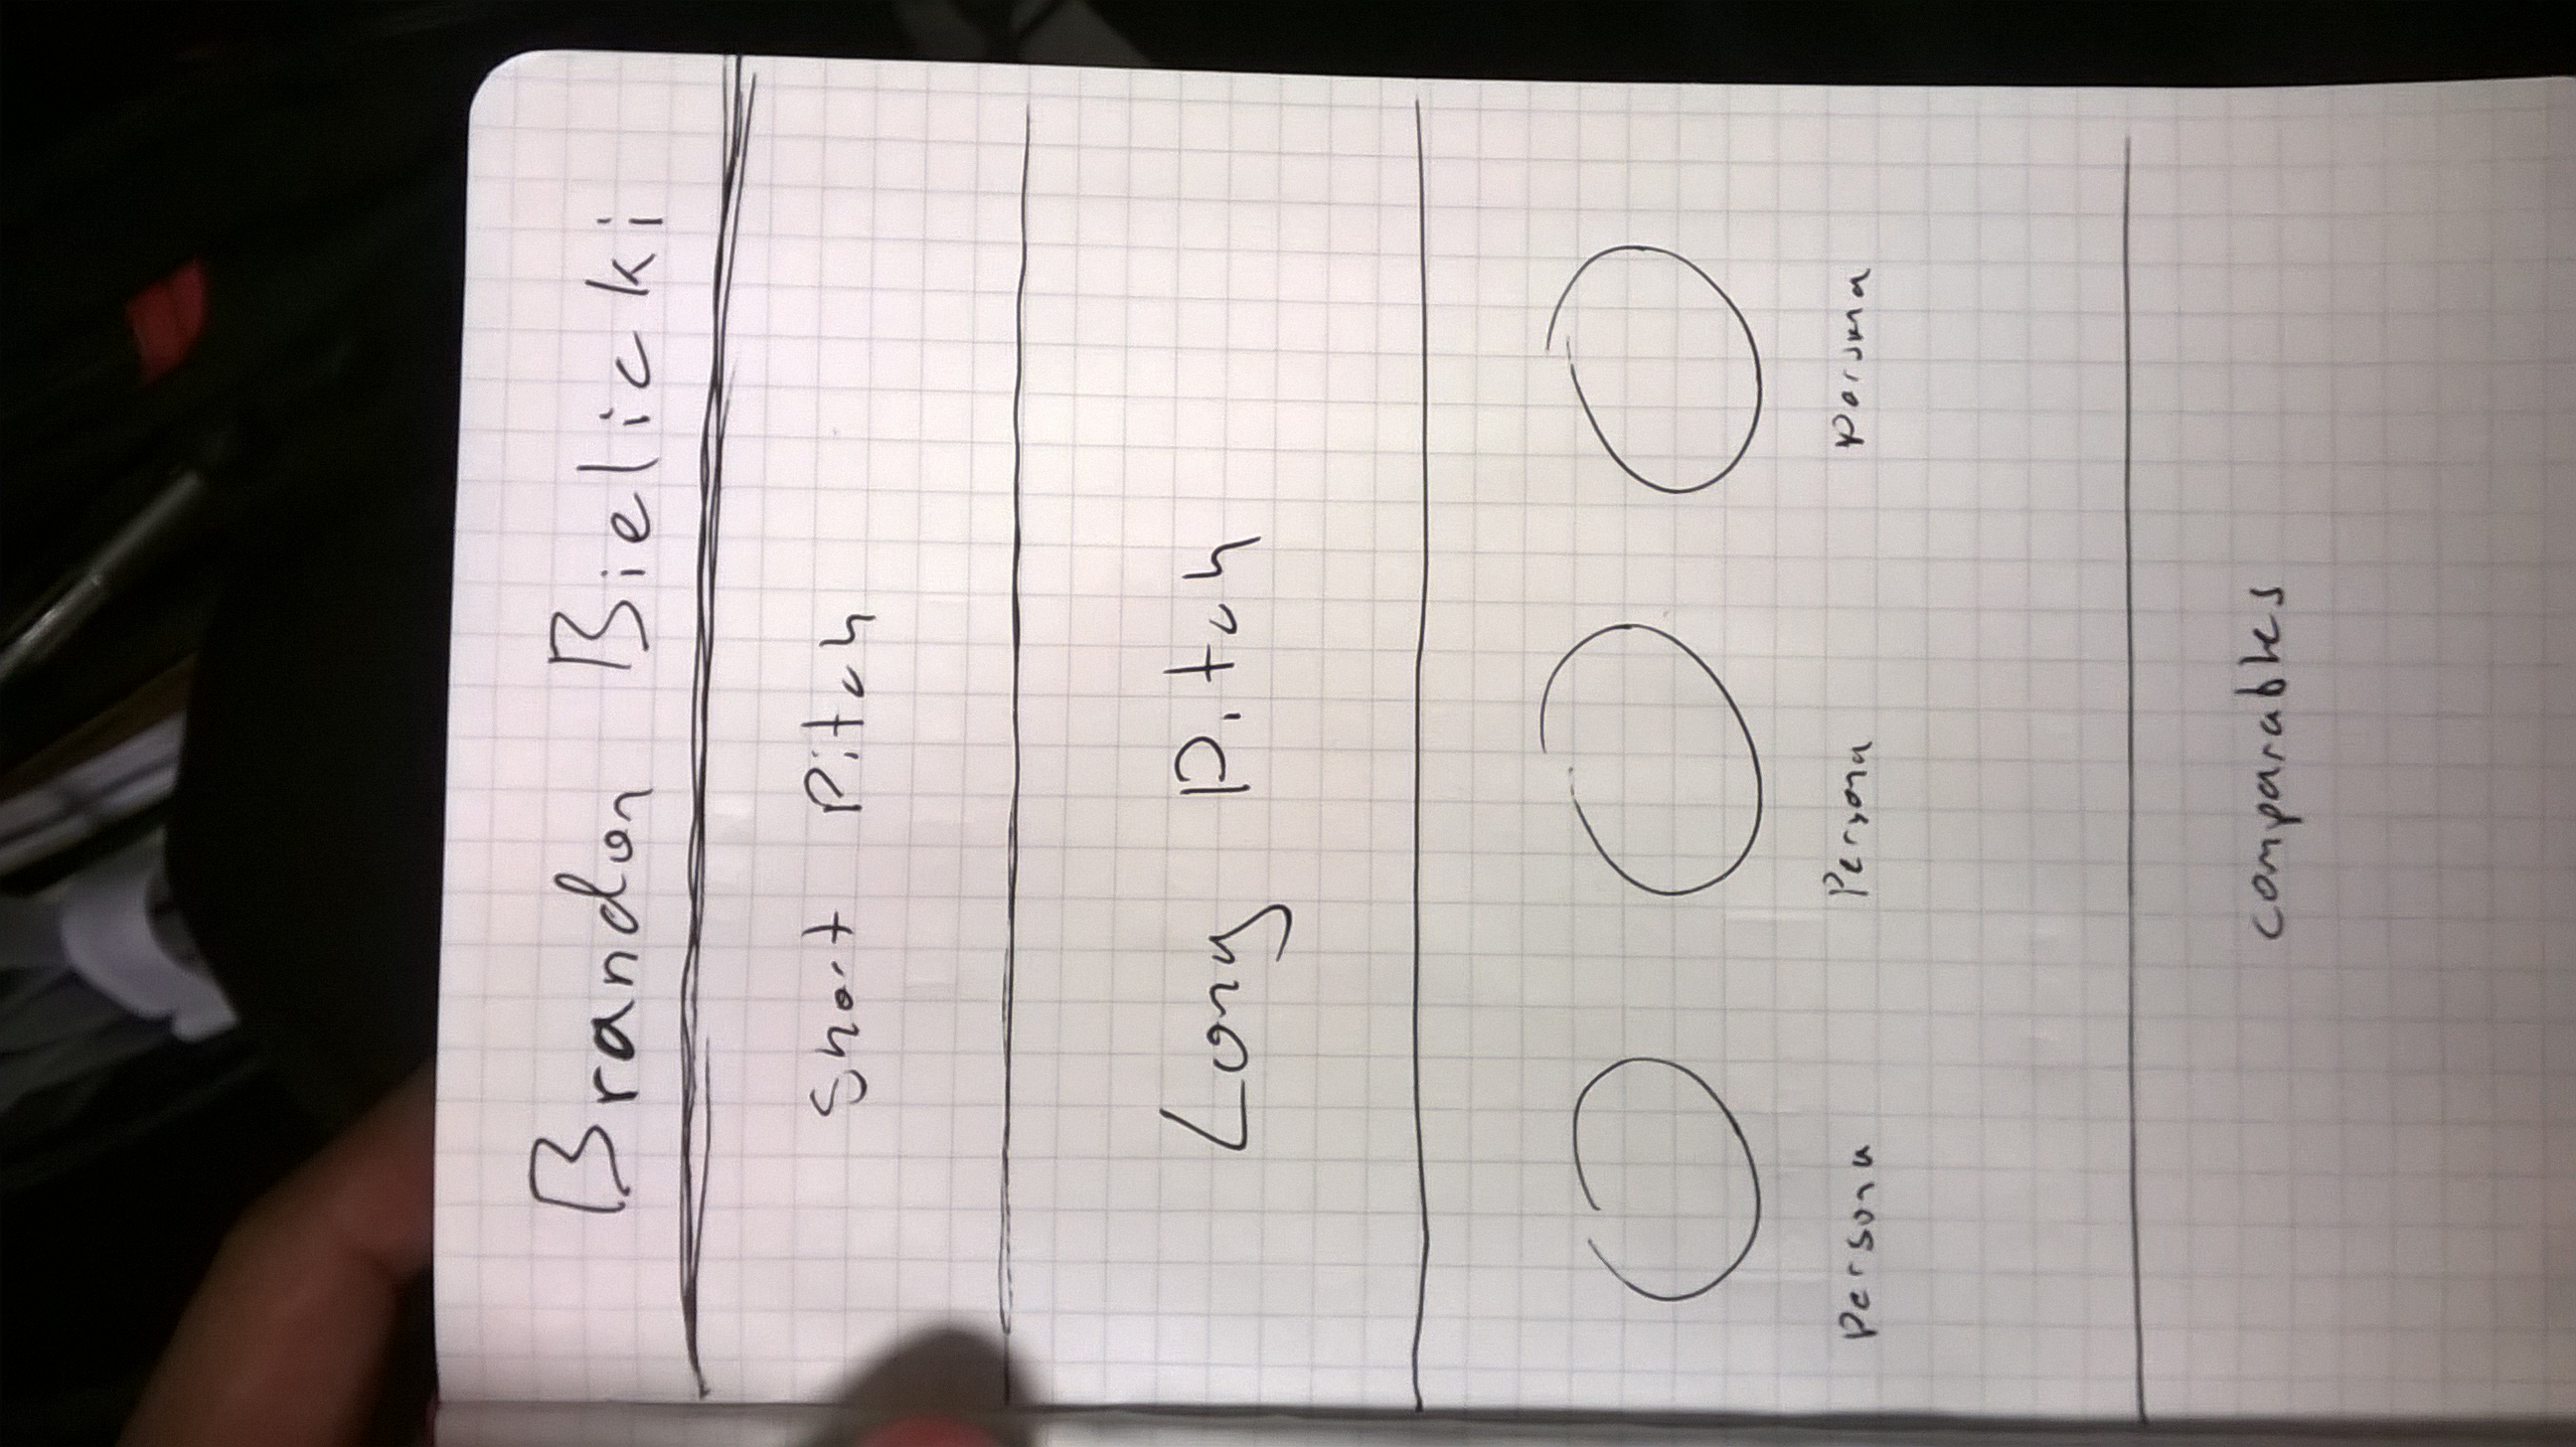 Brandon Bielicki
Short Pitch
Long Pitch
Persona Persona Persona
comparables